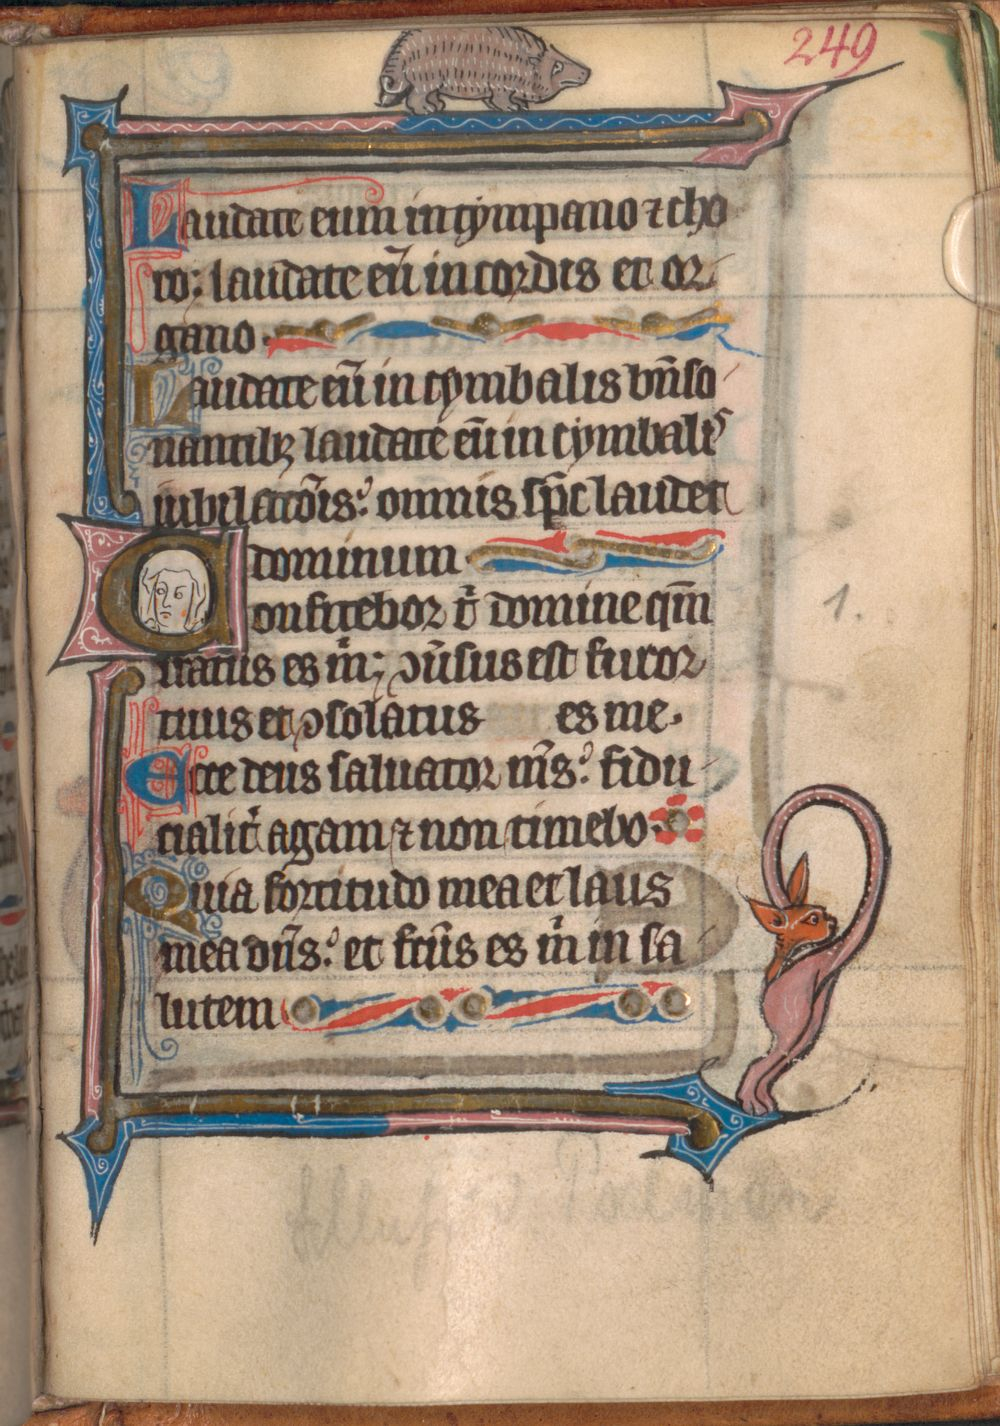 249
Laudate eum in tympano ⁊ cho
ro: laudate eū in cordis et or
gano.
Laudate eū in cymbalis bn̄so
nantibꝫ laudate eū in cymbalis
iubilatōis: omnis sp̄c laudet
dominum
Confitebor t̉ domine qm̄
iratus es m̉: ↄūsus est furor
tuus et ↄsolatus es me.
Ecce deus saluator m̄s: fidu
cialit̉ agam ⁊ non timebo.
Quia fortitudo mea et laus
mea dn̄s: et fc̄us es m̉ in sa
lutem
1.